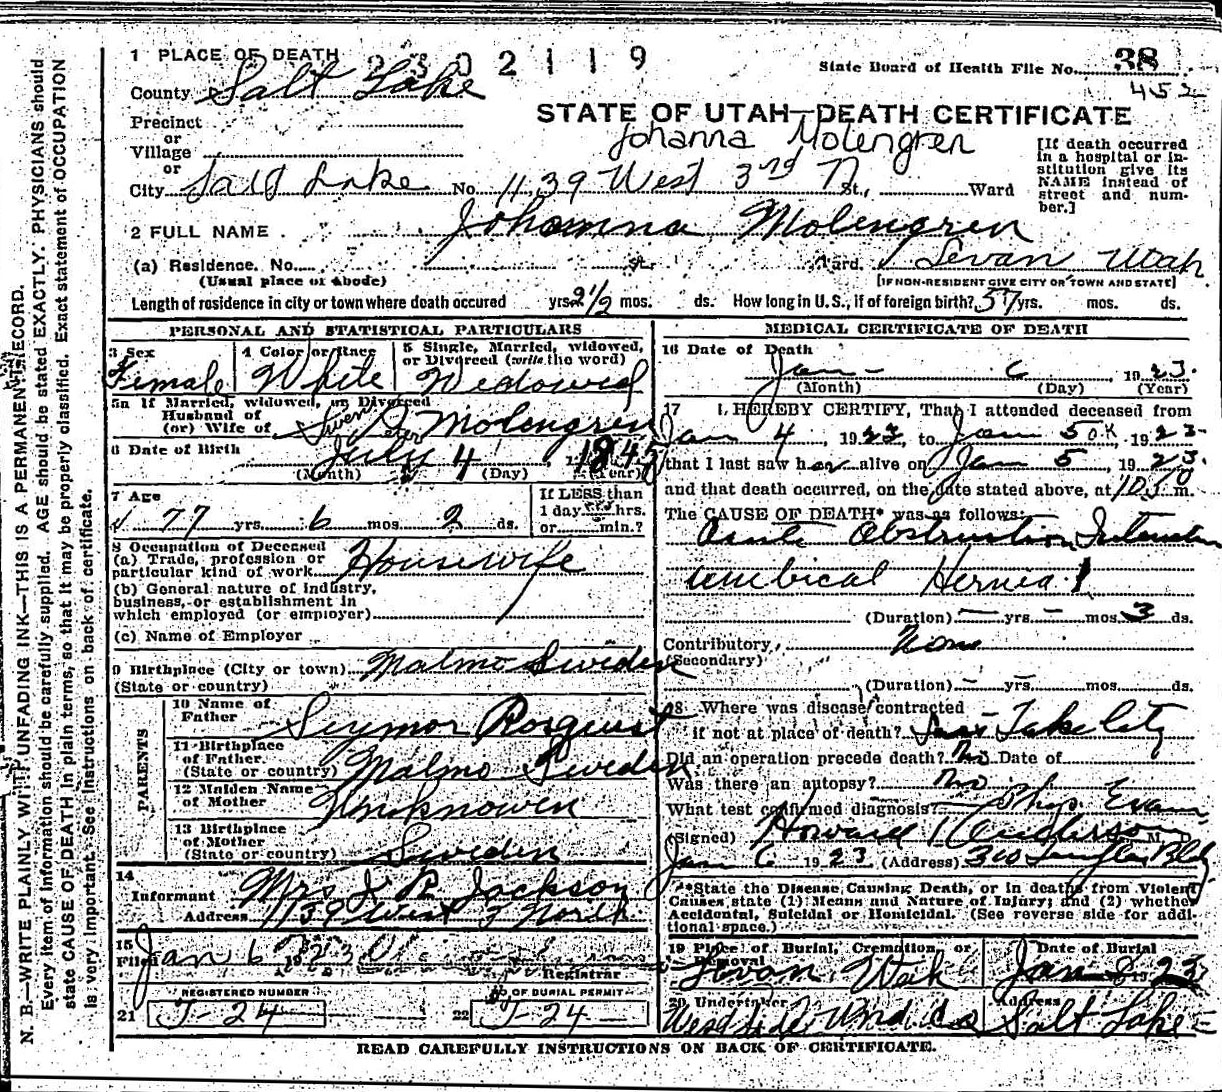 1 PLACE OF DEATH 2302119
State Board of Health File No. 38
452
County Salt Lake
STATE OF UTAH—DEATH CERTIFICATE
Precinct
or
Village
or
Johanna Molengren
[If death occurred in a hospital or institution give its NAME instead of street and number.]
City Salt Lake No. 1139 West 3rd N St., Ward
2 FULL NAME Johanna Molengren
(a) Residence. No. St. Ward. Levan Utah
(Usual place of abode) [IF NON-RESIDENT GIVE CITY OR TOWN AND STATE]
Length of residence in city or town where death occured yrs. 2 1/2 mos. ds. How long in U.S., if of foreign birth? 57 yrs. mos. ds.
PERSONAL AND STATISTICAL PARTICULARS
3 Sex Female
4 Color or Race White
5 Single, Married, widowed, or Divorced (write the word) Widowed
5a If Married, widowed, or Divorced
Husband of
(or) Wife of Molengren
6 Date of Birth July 4 1845
(Month) (Day) (Year)
7 Age 77 yrs. 6 mos. 2 ds.
If LESS than 1 day hrs. or min.?
8 Occupation of Deceased
(a) Trade, profession or particular kind of work Housewife
(b) General nature of industry, business, or establishment in which employed (or employer)
(c) Name of Employer
9 Birthplace (City or town) Malmo Sweden
(State or country)
PARENTS
10 Name of Father Seymor Rosquist
11 Birthplace of Father (State or country) Malmo Sweden
12 Maiden Name of Mother Unknowen
13 Birthplace of Mother (State or country) Sweden
14
Informant Mrs J R Jackson
Address 1139 West 3 North
15
Filed Jan 6 1923
Registrar
REGISTERED NUMBER
21 J-24
NO OF BURIAL PERMIT
22 J-24
MEDICAL CERTIFICATE OF DEATH
16 Date of Death
Jan — 6, 1923
(Month) (Day) (Year)
17 I HEREBY CERTIFY, That I attended deceased from
Jan 4, 1923, to Jan 5 OK, 1923
that I last saw her alive on Jan 5, 1923
and that death occurred, on the date stated above, at m.
The CAUSE OF DEATH* was as follows:
Acute Obstruction Intestin
umbical Hernia
(Duration) — yrs. — mos. 3 ds.
Contributory None
(Secondary)
(Duration) — yrs. mos. ds.
18 Where was disease contracted
if not at place of death? Salt Lake City
Did an operation precede death? No Date of
Was there an autopsy? No
What test confirmed diagnosis? Phys. Exam
(Signed) Howard Anderson M.
Jan 6 1923 (Address) 310 Bldg
*State the Disease Causing Death, or in deaths from Violent Causes state (1) Means and Nature of Injury; and (2) whether Accidental, Suicidal or Homicidal. (See reverse side for additional space.)
19 Place of Burial, Cremation, or Removal Levan, Utah
Date of Burial Jan 8 1923
20 Undertaker West Side Und Co
Address Salt Lake
READ CAREFULLY INSTRUCTIONS ON BACK OF CERTIFICATE.
N. B.—WRITE PLAINLY WITH UNFADING INK—THIS IS A PERMANENT RECORD.
Every item of information should be carefully supplied. AGE should be stated EXACTLY. PHYSICIANS should
state CAUSE OF DEATH in plain terms, so that it may be properly classified. Exact statement of OCCUPATION
is very important. See instructions on back of certificate.